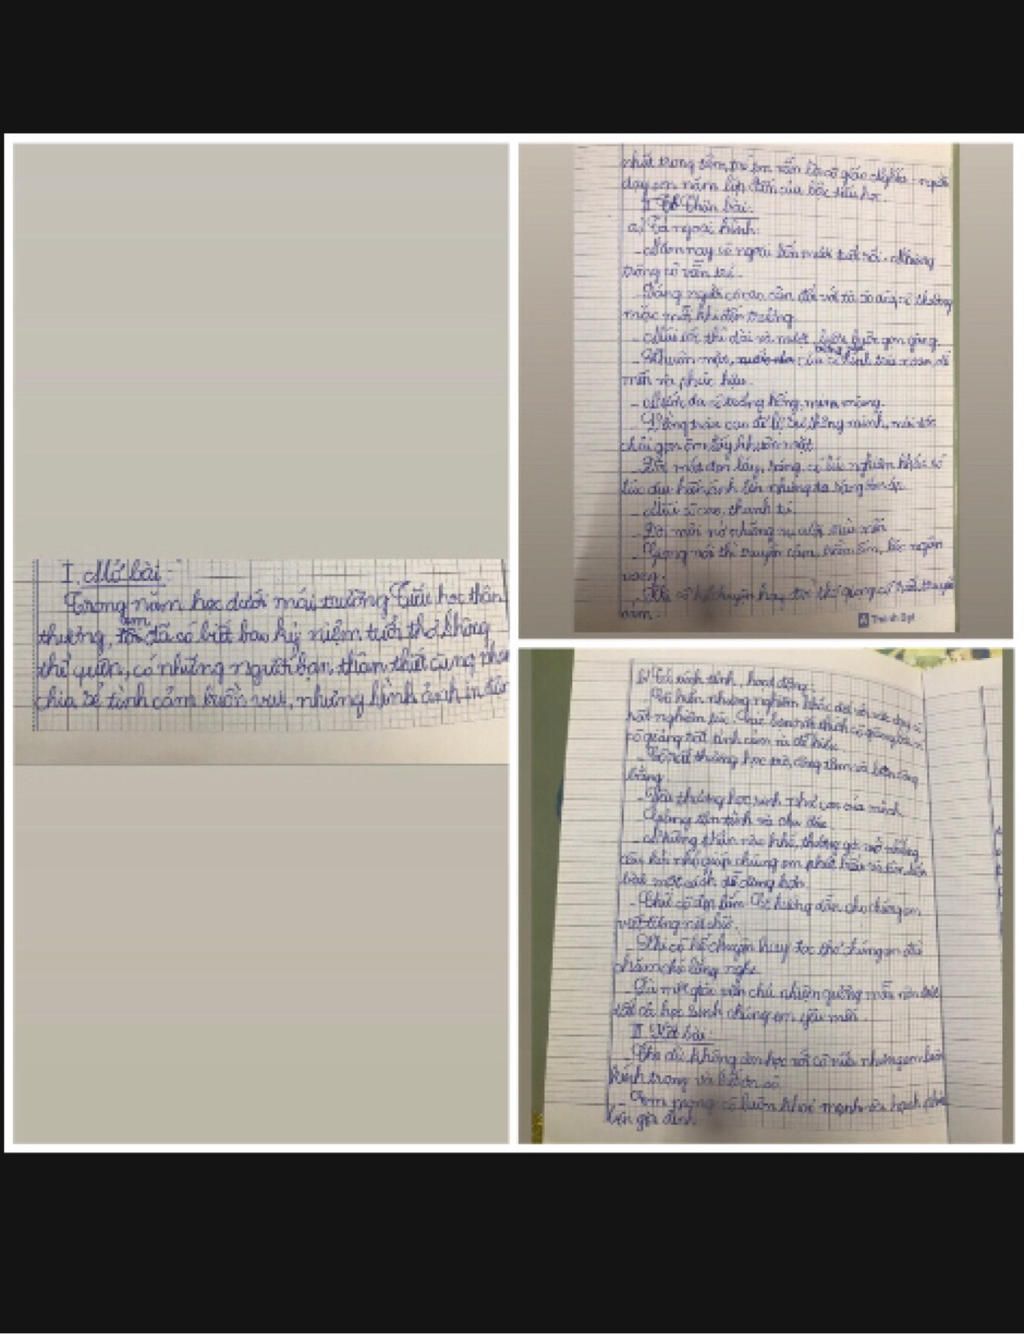 I. Mở bài:
Trong năm học dưới mái trường Tiểu học thân
thương, em đã có biết bao kỷ niệm tuổi thơ không
thể quên, có những người bạn thân thiết cùng
chia sẻ tình cảm buồn vui, những hình ảnh in
nhất trong tâm trí em vẫn là cô giáo - người
dạy em năm lớp của bậc tiểu học.
II. Thân bài:
a) Tả ngoại hình:
- Năm nay cô ngoài bốn mươi tuổi rồi. Nhưng
trông cô vẫn trẻ.
- Dáng người cô cao cân đối với tà áo dài cô thường
mặc mỗi khi đến trường.
- Mái tóc thì dài và mượt, luôn buộc gọn gàng.
- Khuôn mặt, của cô hình trái xoan, dễ
mến và phúc hậu.
- Nước da cô trắng hồng, mịn màng.
- Vầng trán cao để lộ sự thông minh, mái tóc
chải gọn ôm lấy khuôn mặt.
- Đôi mắt đen láy, sáng, có lúc nghiêm khắc có
lúc dịu hiền, ánh lên những tia sáng ấm áp.
- Mũi cô cao, thanh tú
- Đôi môi nở những nụ cười
- Giọng nói thì truyền cảm, trầm ấm, lúc ngân
vang.
- Khi cô kể chuyện hay đọc thơ giọng cô thật truyền
cảm.
Thành Đạt
b) Tả tính tình, hoạt động:
- Cô hiền nhưng nghiêm khắc đối với việc dạy cô
rất nghiêm túc. Các bạn rất thích cô giảng bài vì
cô giảng rất tình cảm và dễ hiểu.
- Cô rất thương học trò, công tâm và luôn công
bằng
- Yêu thương học sinh như con của mình
- Giảng tận tình và chu đáo
- Những phần nào khó, thường gợi mở những
câu hỏi nhỏ giúp chúng em phát biểu và tìm hiểu
bài một cách dễ dàng hơn.
- Chữ cô đẹp lắm. Cô hướng dẫn cho chúng em
viết từng nét chữ.
- Khi cô kể chuyện hay đọc thơ chúng em đều
chăm chú lắng nghe.
- Là một giáo viên chủ nhiệm gương mẫu nên được
tất cả học sinh chúng em yêu mến.
III. Kết bài:
- Cho dù không còn học với cô nữa nhưng em luôn
kính trọng và biết ơn cô
- Em mong cô luôn khoẻ mạnh và hạnh phúc
bên gia đình